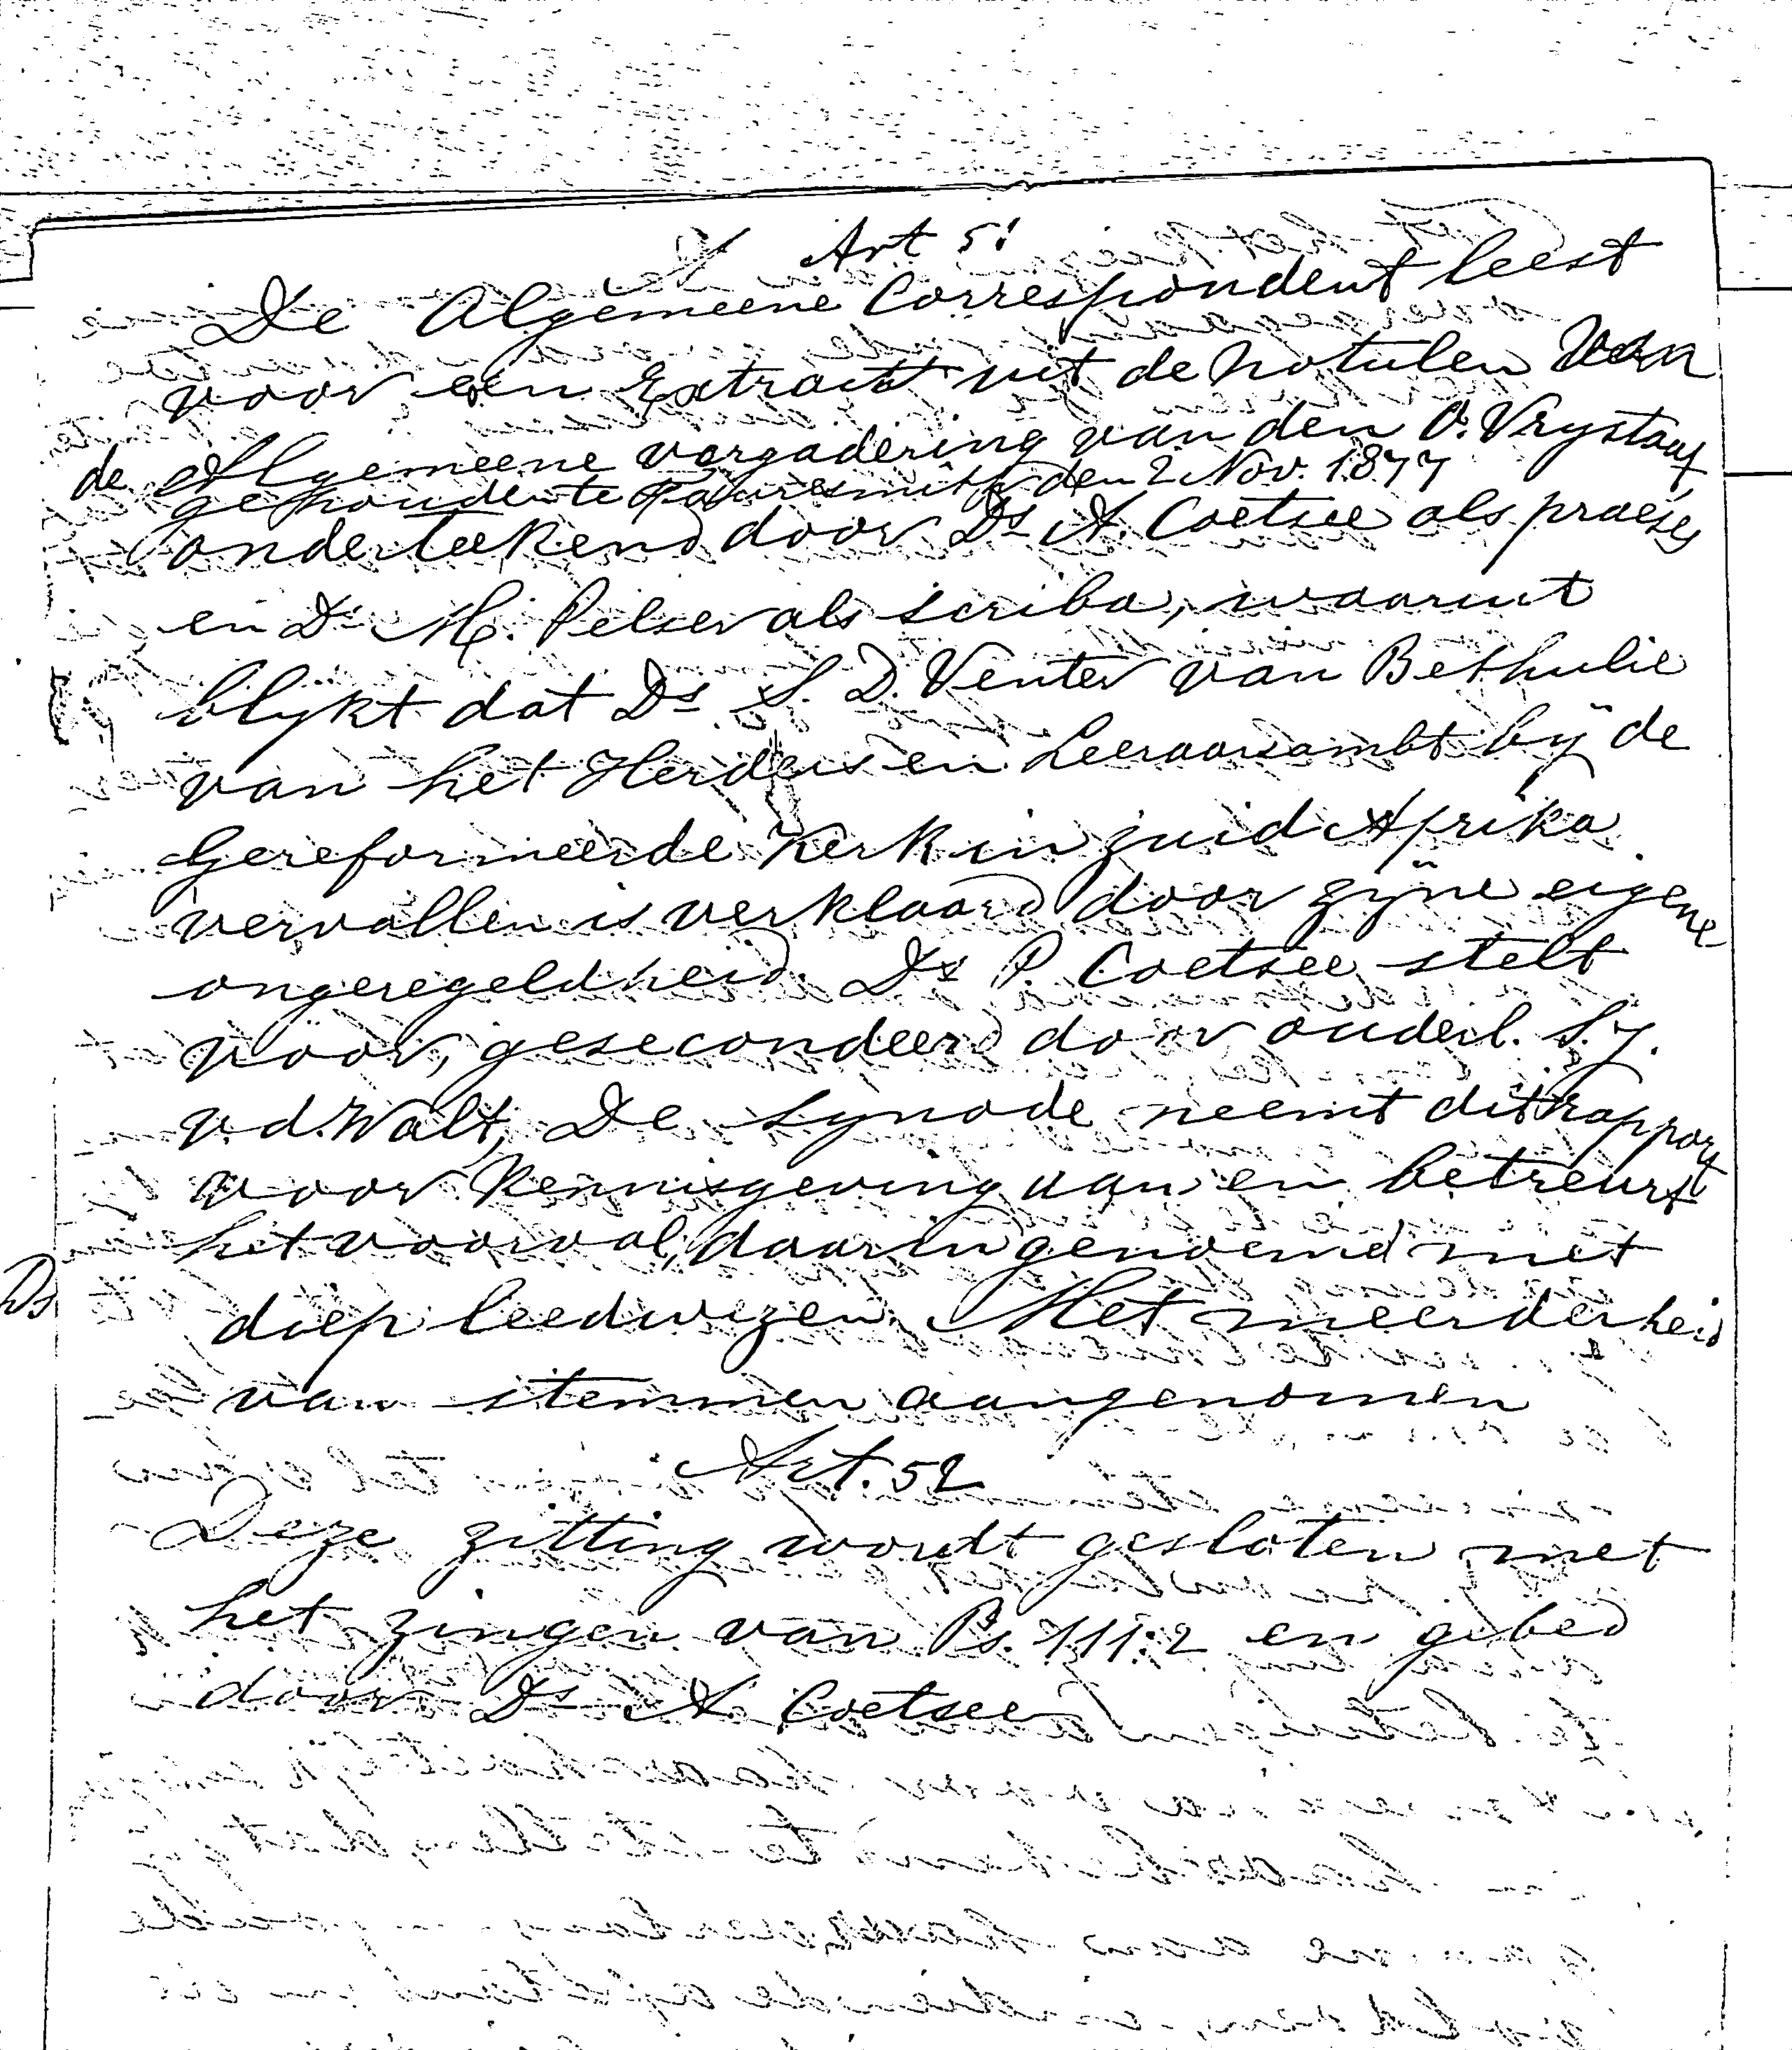 Art 51
De Algemeene Correspondent leest
voor een Extract uit de notulen van
de Algemeene vergadering van den O. Vrystaat
gehouden te Fauresmith den 2 Nov. 1877
onderteekend door Ds A. Coetsee als praeses
en Ds M. Pelser als scriba, waaruit
blijkt dat Ds S. D. Venter van Bethulie
van het Herders en Leeraarsambt bij de
Gereformeerde Kerk in Zuid Afrika
vervallen is verklaard door zijne eigene
ongeregeldheid. Ds P. Coetsee stelt
voor, gesecondeerd door ouderl. S. J.
v.d. Walt, De Synode neemt dit rapport
voor kennisgeving aan en betreurt
het voorval, daarin genoemd met
Ds
diep leedwezen. Met meerderheid
van stemmen aangenomen
Art. 52
Deze zitting wordt gesloten met
het zingen van Ps. 111:2 en gebed
door Ds A. Coetsee